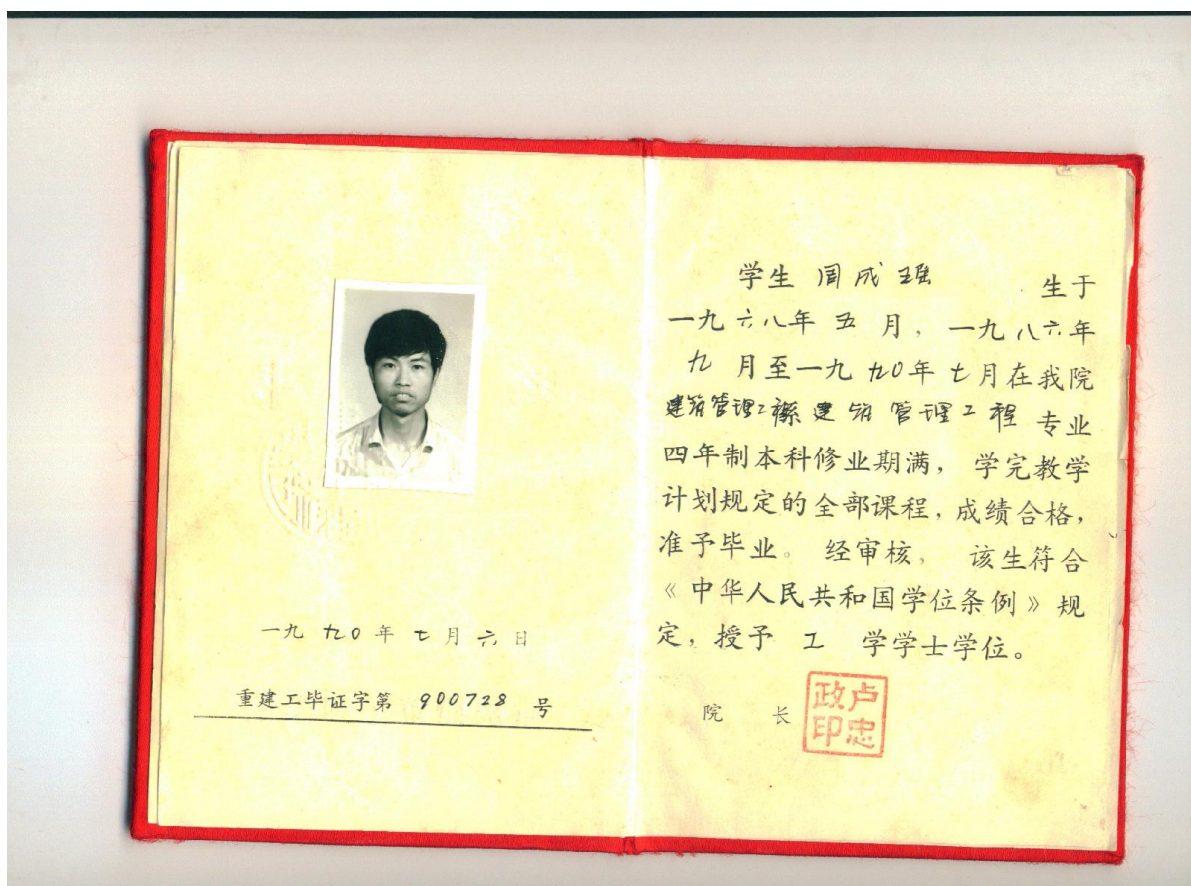 一九九0年七月六日
重建工毕证字第 900728 号
学生 周成 生于
一九六八年五月，一九八六年
九月至一九九0年七月在我院
建筑管理工系建筑管理工程专业
四年制本科修业期满，学完教学
计划规定的全部课程，成绩合格，
准予毕业。经审核，该生符合
《中华人民共和国学位条例》规
定，授予 工 学学士学位。
院 长
卢忠
政印